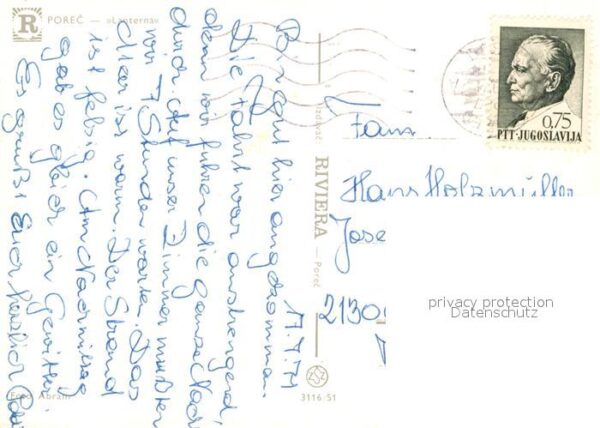 POREČ — »Lanterna«
R
17.7.71
Bin gut hier angekommen.
Die Fahrt war anstrengend,
denn wir fuhren die ganze Nacht
durch. Auf unser Zimmer mußten
wir 7 Stunden warten. Das
Meer ist warm. Der Strand
ist felsig. Am Nachmittag
gab es gleich ein Gewitter.
Es grüßt Euch herzlich
Foto Abram
Izdavač
RIVIERA — Poreč
3116/51
0,75
PTT-JUGOSLAVIJA
Fam.
Hans Holzmüller
Jose
2130
privacy protection
Datenschutz